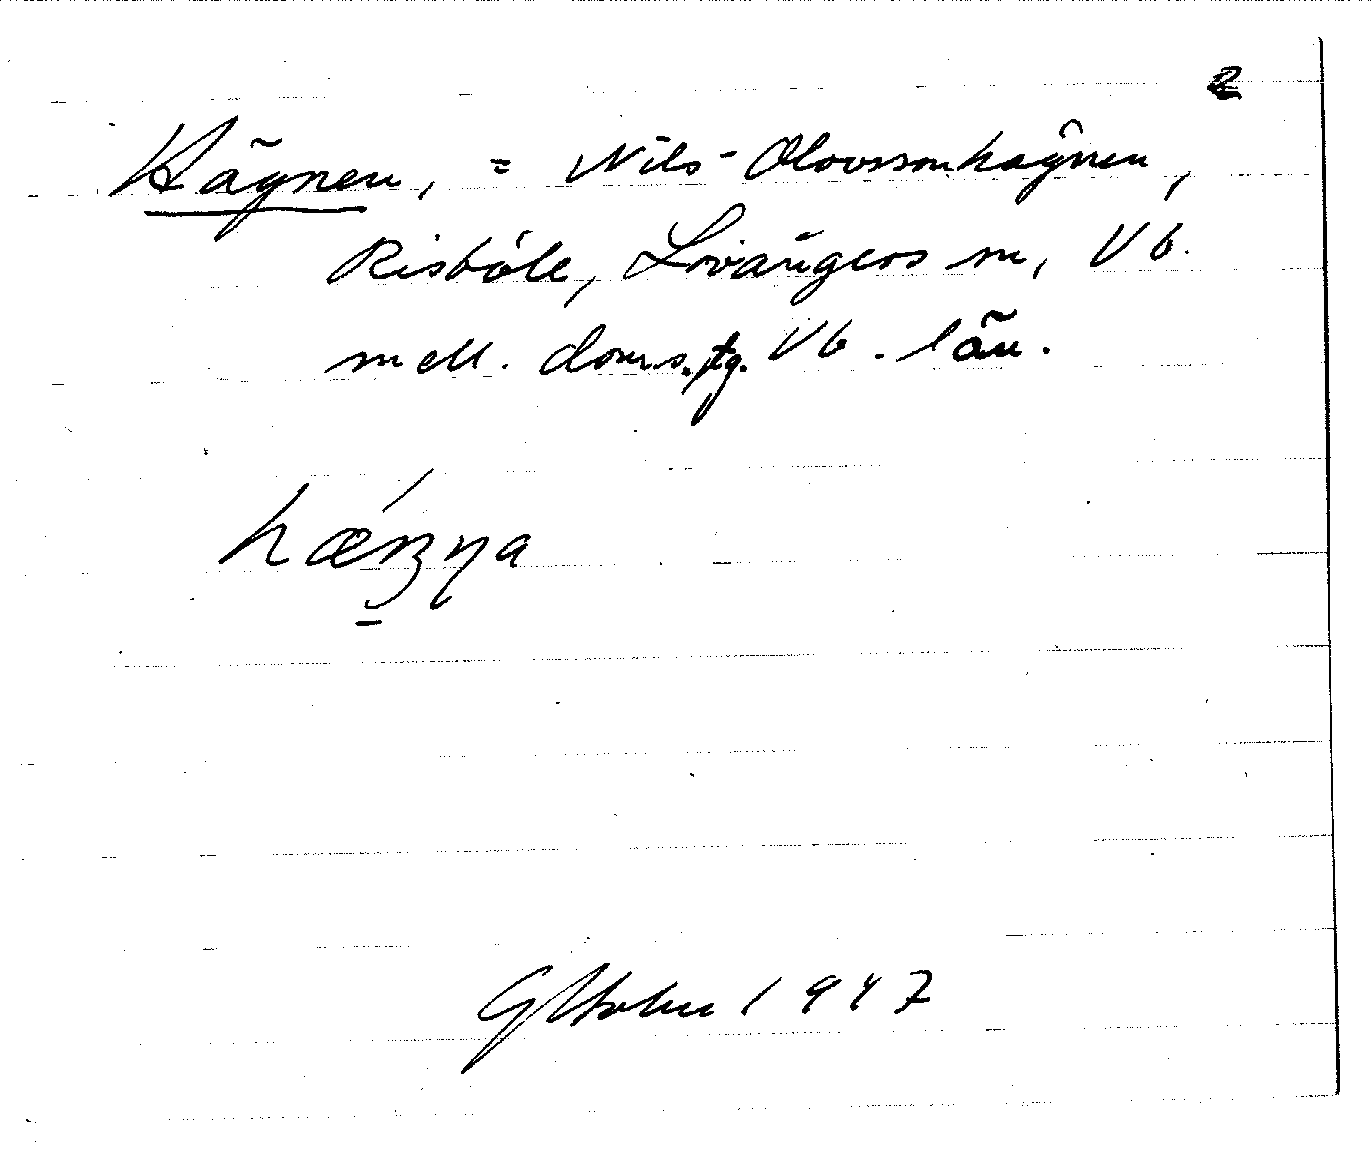 2
Hägnen, = Nils-Olovssonhägnen,
Risböle, Lövångers sn, Vb.
mell. doms.tg. Vb. län.
GHolm 1947